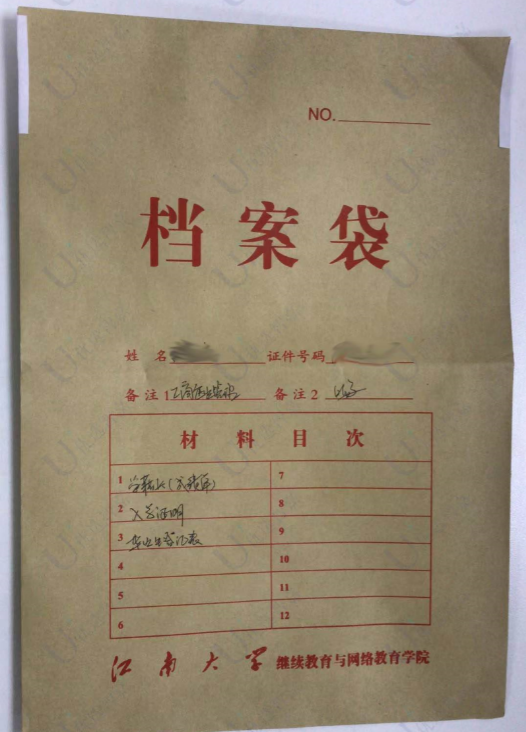 NO.
档案袋
姓 名 证件号码
备注1 备注2
材料目次
1 学籍表(成绩单) 7
2 入党证明 8
3 毕业生登记表 9
4 10
5 11
6 12
江南大学 继续教育与网络教育学院